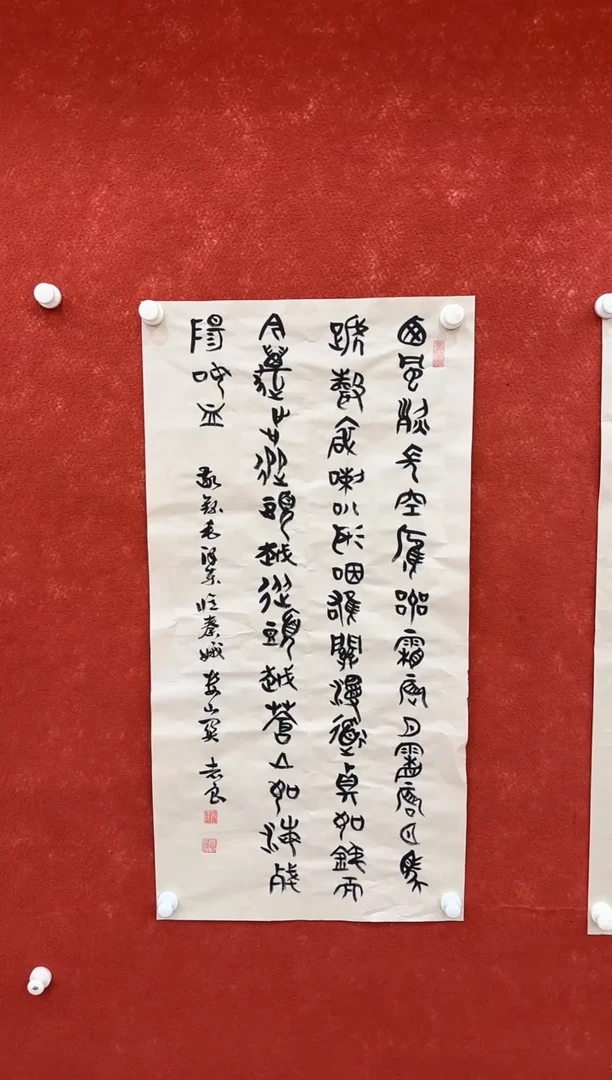 西風烈長空雁叫霜晨月霜晨月馬
蹄聲碎喇叭聲咽雄關漫道真如鐵而
今邁步從頭越從頭越蒼山如海殘
陽如血
敬録毛泽东忆秦娥娄山関 志良